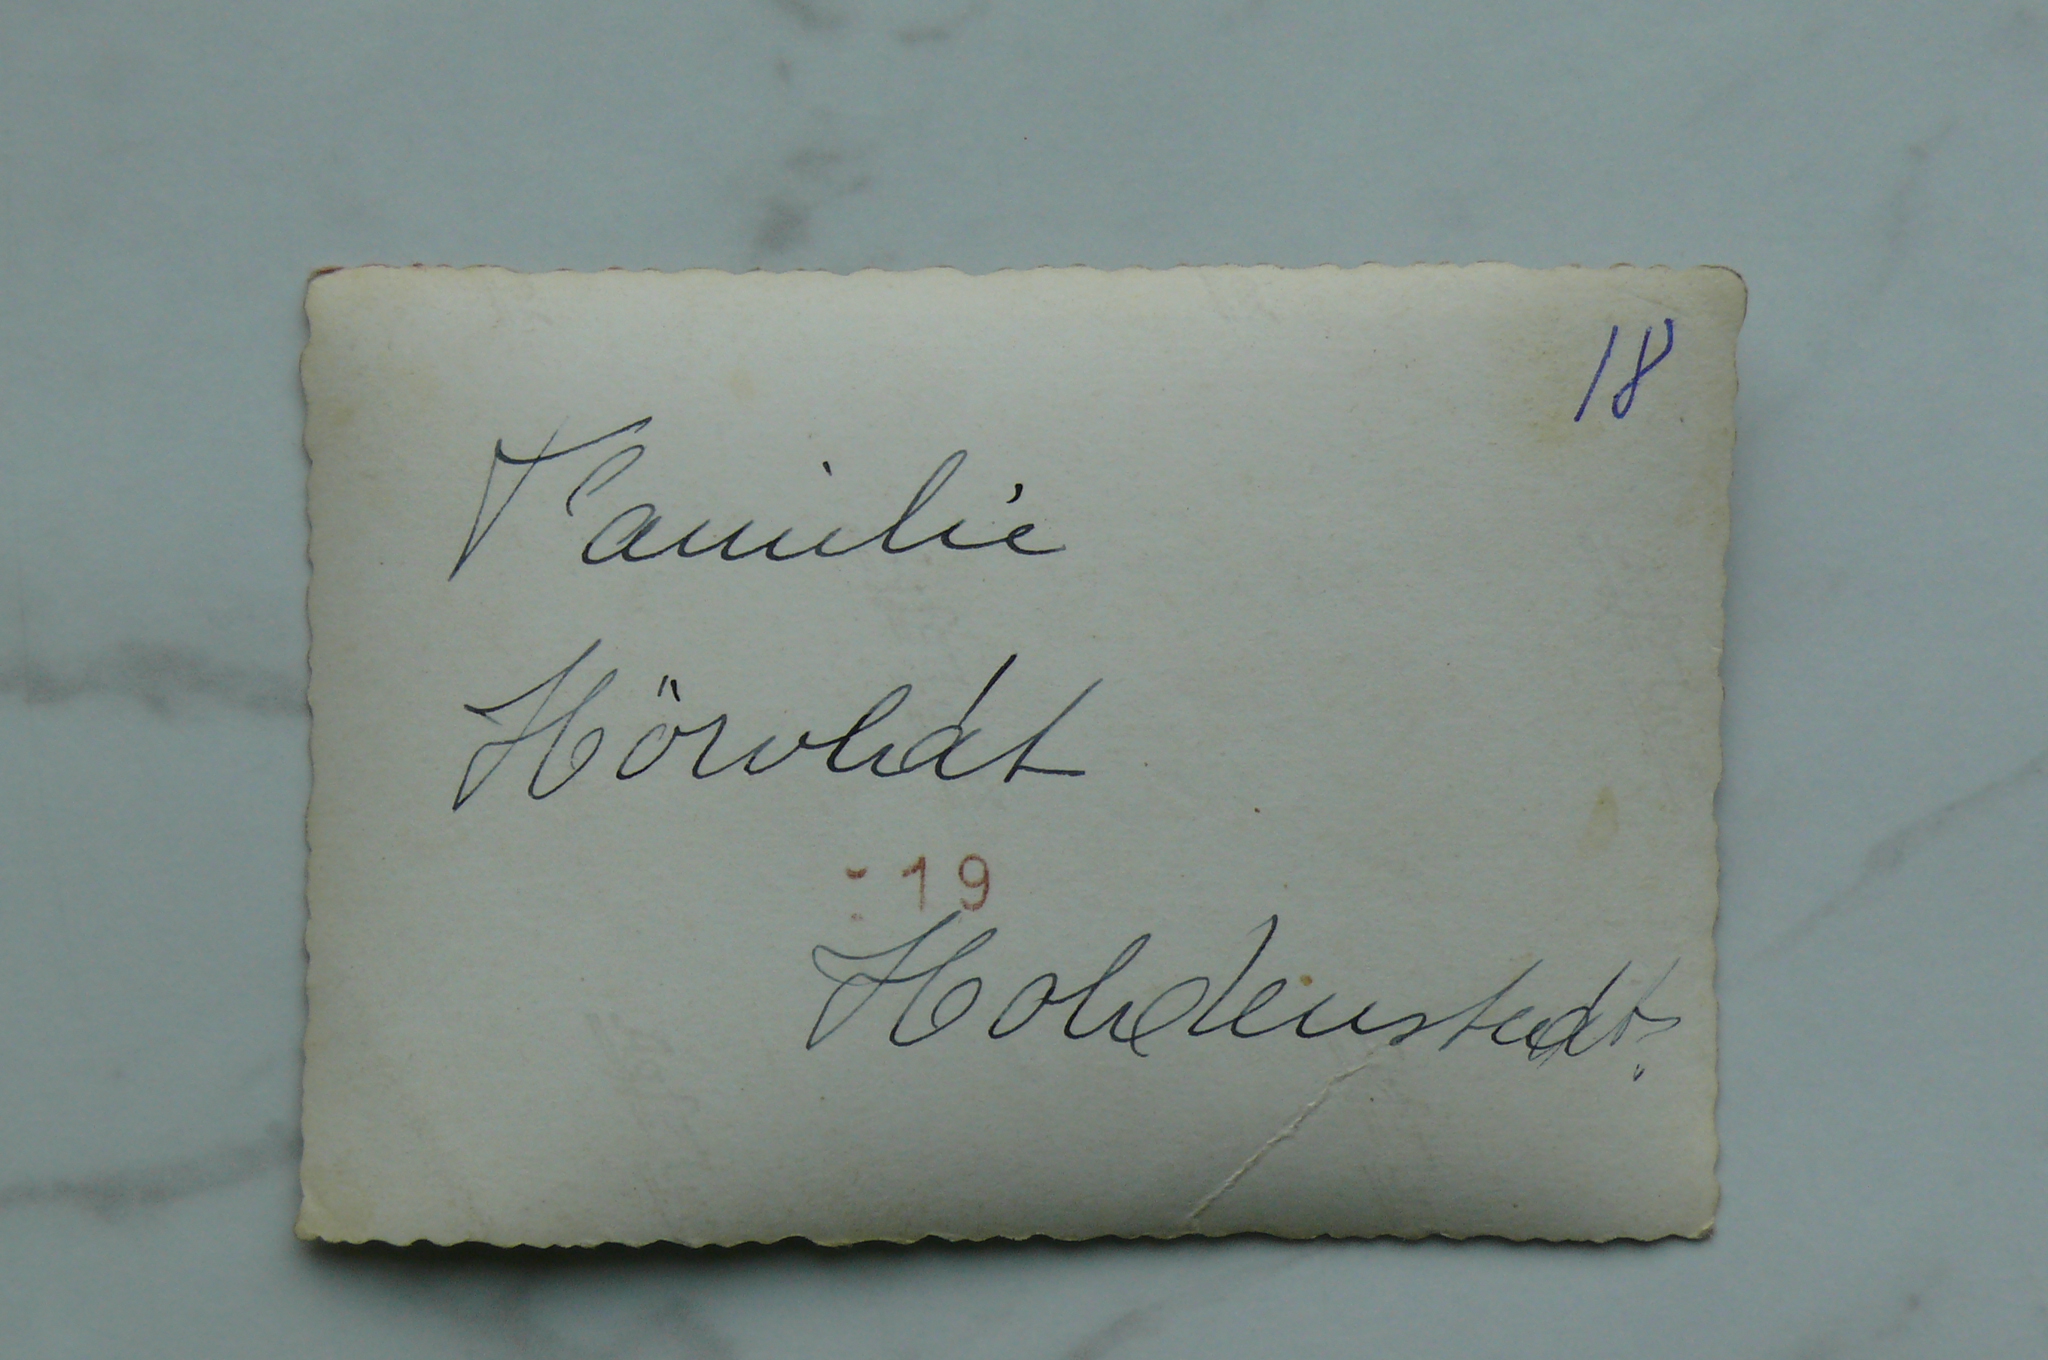 18
Familie
19
Holdenstedt.